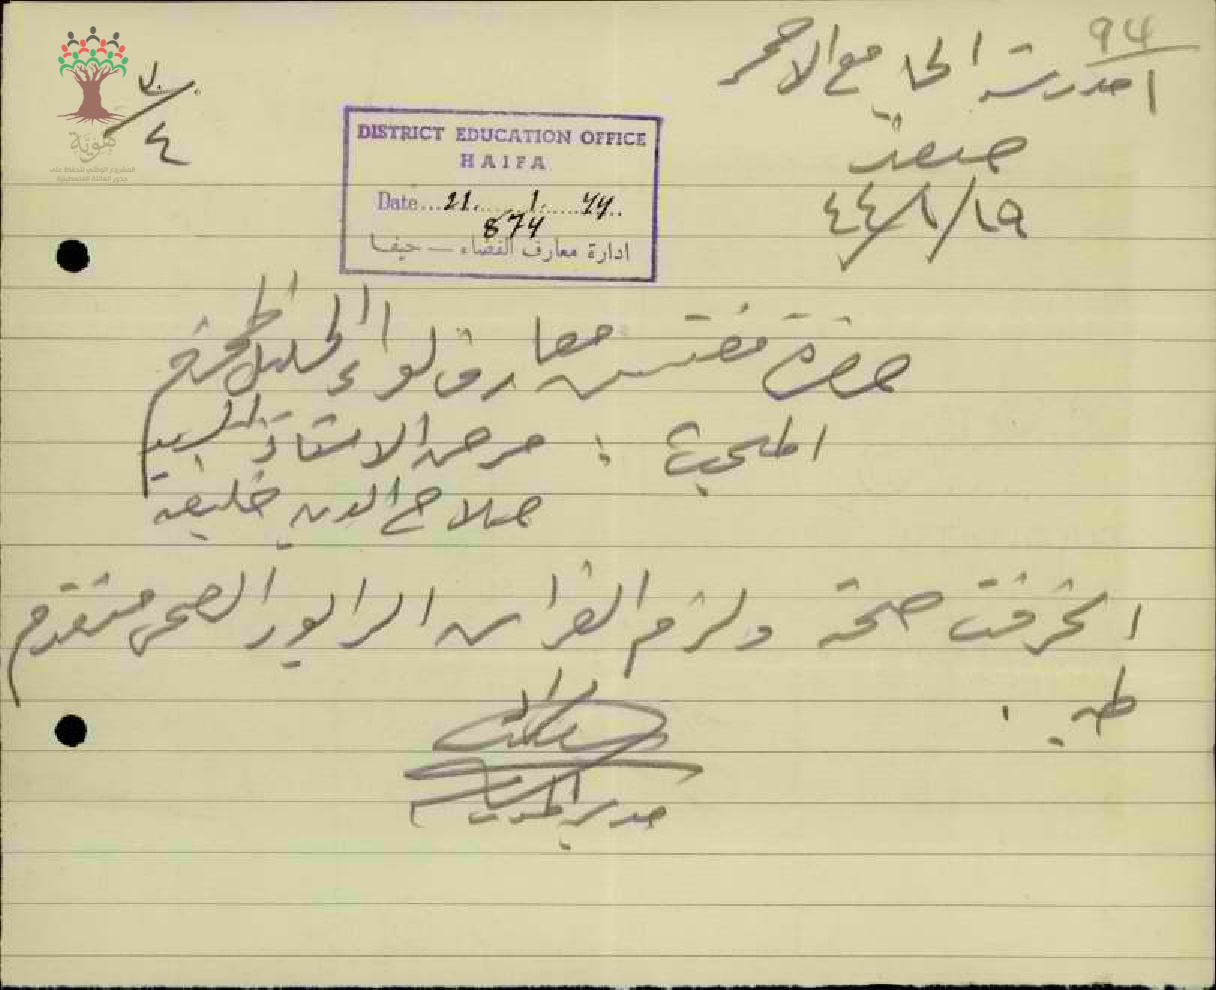 94
مدرسة الجامع الاحمر
صفد
٤٤/١/١٩
٤
هوية
المشروع الوطني للحفاظ على
جذور العائلة الفلسطينية
DISTRICT EDUCATION OFFICE
HAIFA
Date...21......1......44..
874
ادارة معارف القضاء — حيفا
حضرة مفتش معارف لواء الجليل المحترم
المبحث : مرض الاستاذ السيد
صلاح الدين خليفه
انحرفت صحته ولزم الفراش الرابور الصحي مقدم
طيه .
مدير المدرسة